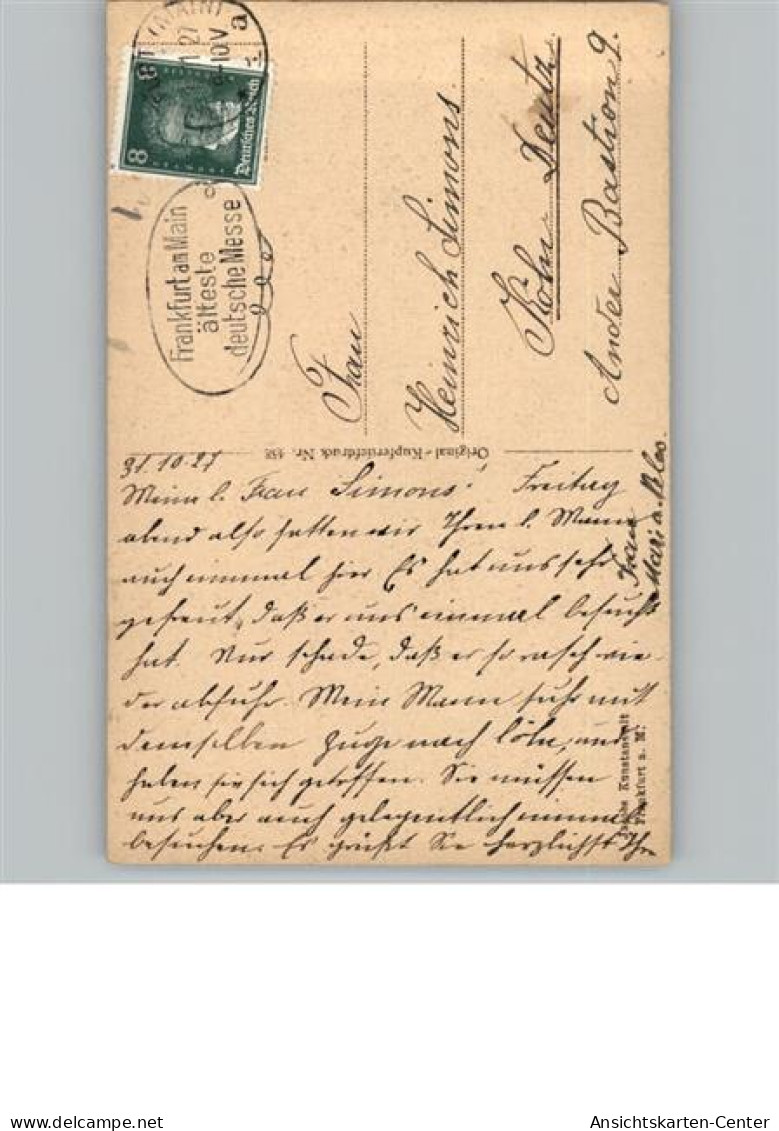 (MAIN)
27
-10 V
a
8
8
Deutsches Reich
Frankfurt am Main
älteste
deutsche Messe
Frau
Heinrich Simons
Köln-Deutz
An der Bastion 9.
Original-Kupfertiefdruck Nr.
31.10.27
Meine l. Frau Simons! Freitag
abend also hatten wir Ihren l. Mann
auch einmal hier Es hat uns sehr
gefreut, daß er uns einmal besucht
hat. Nur schade, daß er so rasch wie-
der abfuhr. Mein Mann fuhr mit
demselben Zuge nach Köln, und
haben sie sich getroffen. Sie müssen
uns aber auch gelegentlich einmal
besuchen. Es grüßt Sie herzlichst Ihre
Frau
Maria
Kunstanstalt
Frankfurt a. M.
Ansichtskarten-Center